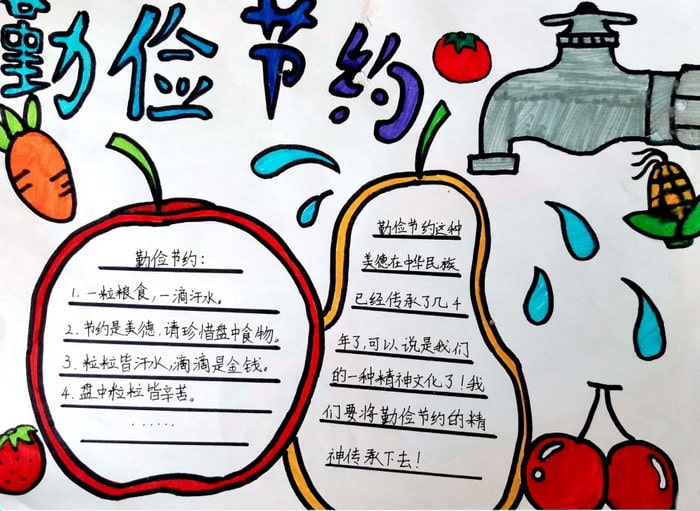 勤俭节约
勤俭节约：
1. 一粒粮食，一滴汗水。
2. 节约是美德，请珍惜盘中食物。
3. 粒粒皆汗水，滴滴是金钱。
4. 盘中粒粒皆辛苦。
......
勤俭节约这种
美德在中华民族
已经传承了几千
年了，可以说是我们
的一种精神文化了！我
们要将勤俭节约的精
神传承下去！